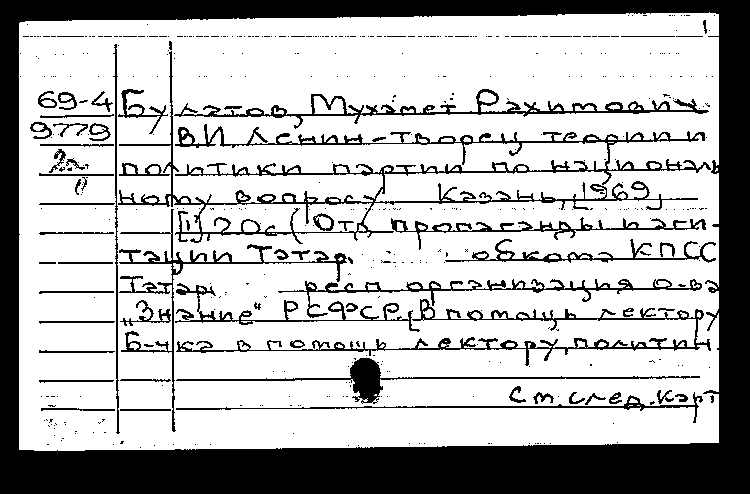 1
69-4 Булатов, Мухамет Рахимович
9779 В.И. Ленин-творец теории и
2а политики партии по националь
ному вопросу. Казань, [1969]
[1], 20с. (Отд. пропаганды и аги-
тации Татар. обкома КПСС
Татар. респ. организация о-ва
„Знание" РСФСР. [В помощь лектору
Б-чка в помощь лектору, политин.
См. след. карт